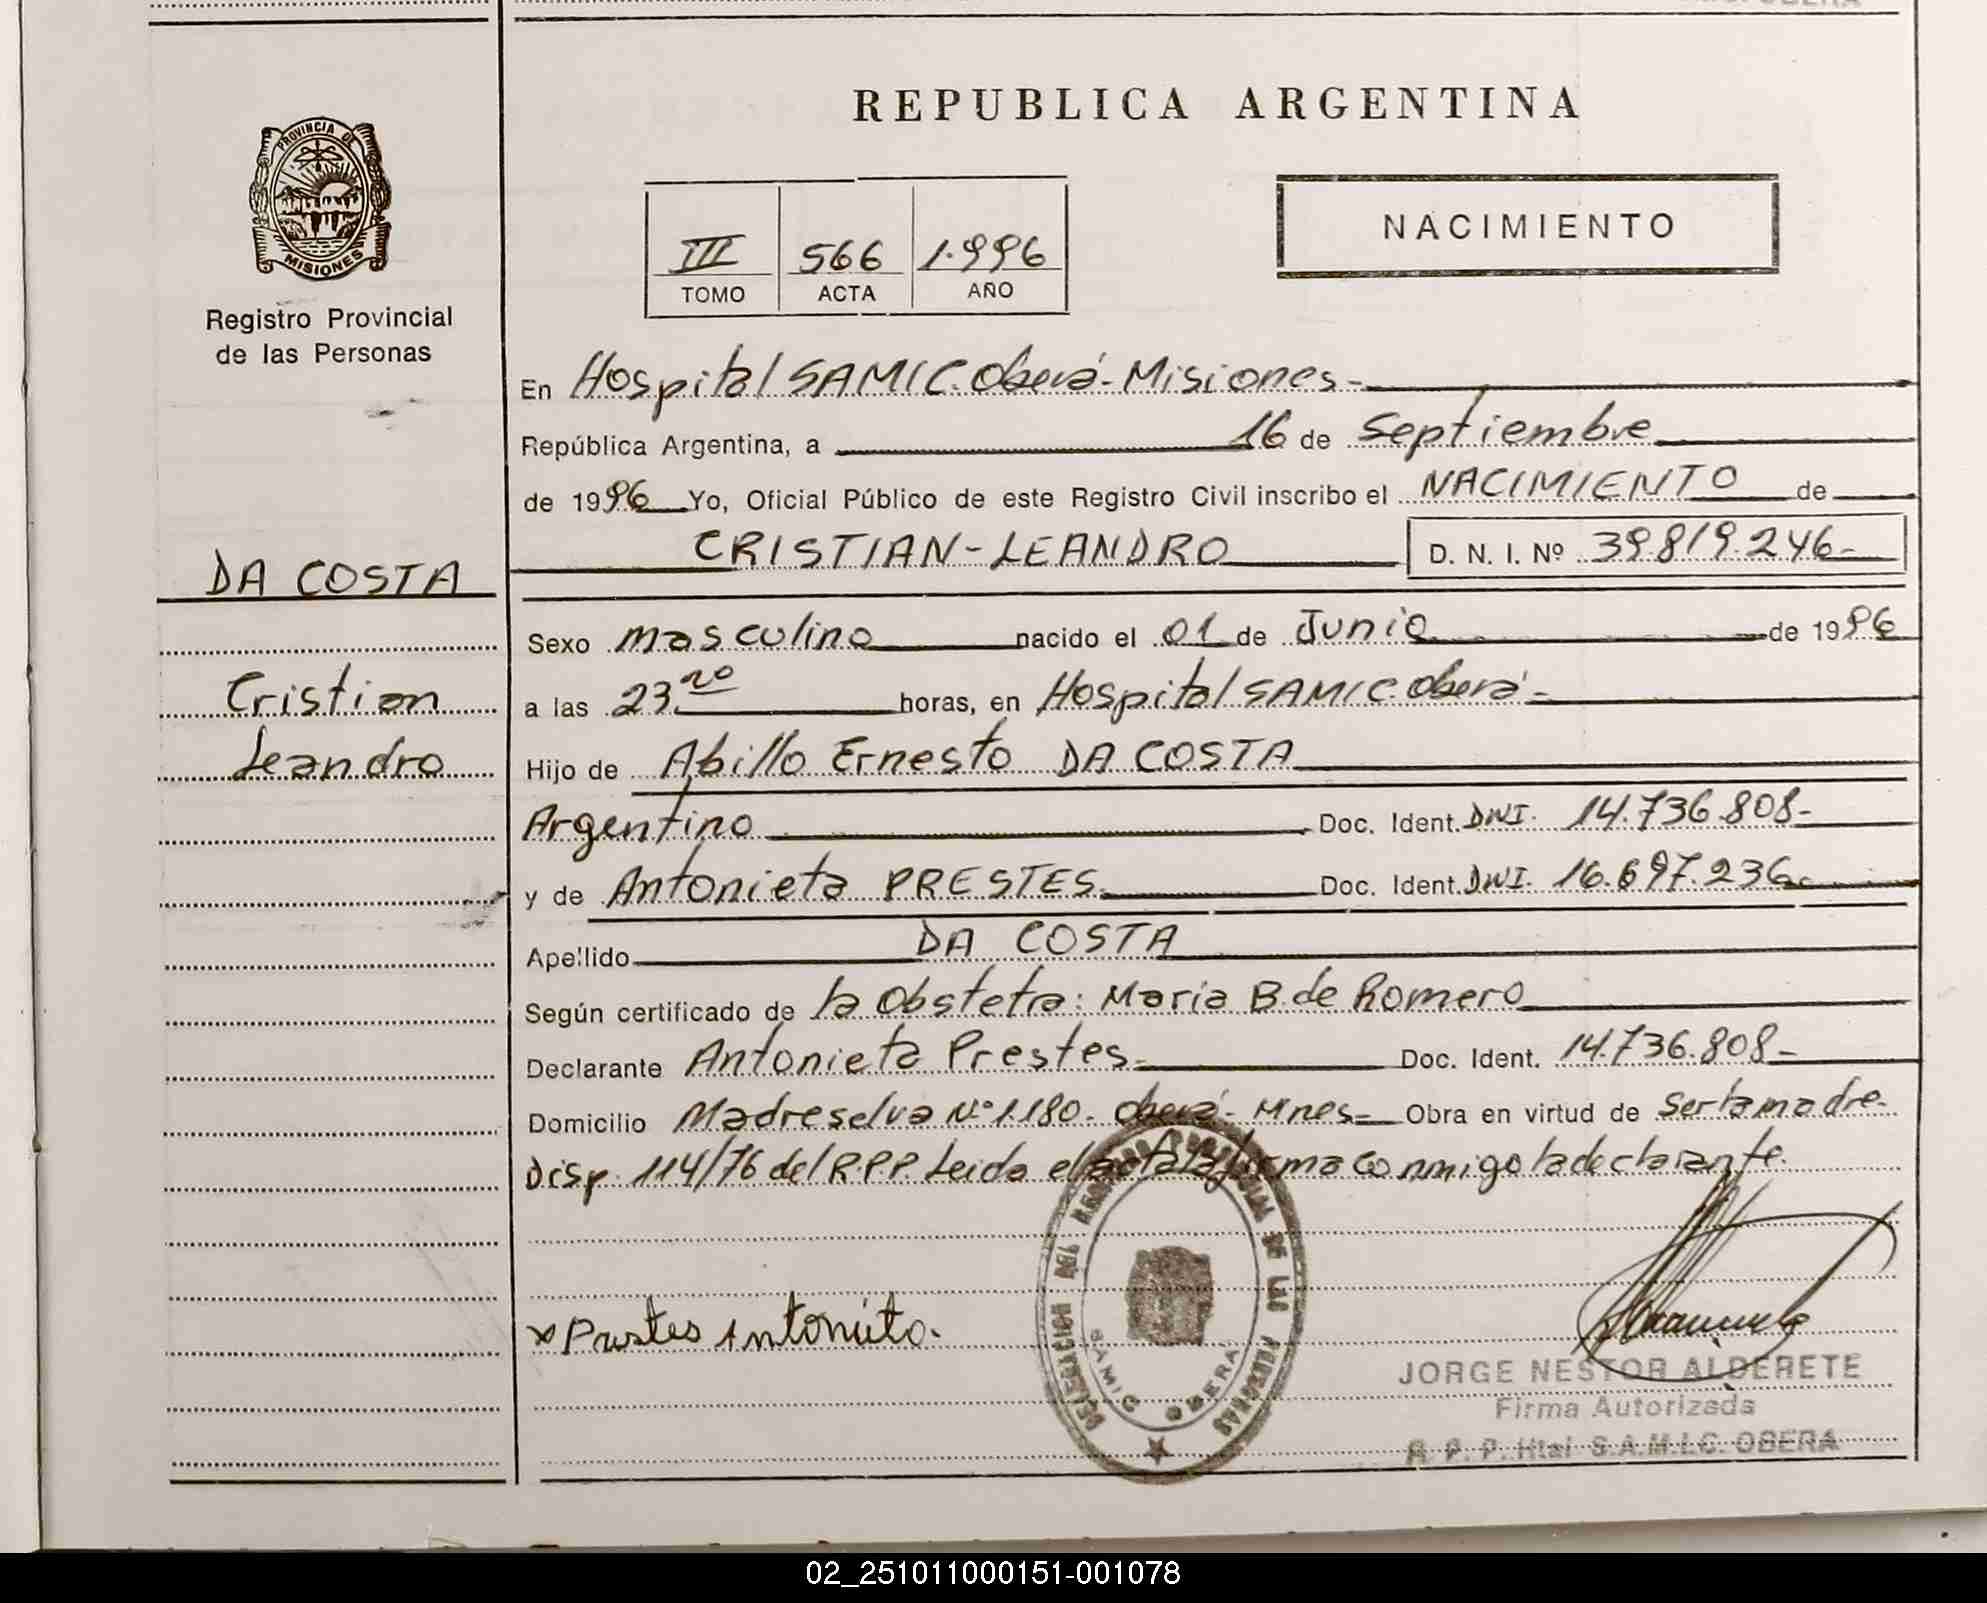 REPUBLICA ARGENTINA
PROVINCIA DE
MISIONES
Registro Provincial
de las Personas
III 566 1.996
TOMO ACTA AÑO
NACIMIENTO
En Hospital SAMIC. Oberá- Misiones-
República Argentina, a 16 de Septiembre
de 1996 Yo, Oficial Público de este Registro Civil inscribo el NACIMIENTO de
CRISTIAN-LEANDRO D. N. I. Nº 39.819.246-
DA COSTA
Cristian
Leandro
Sexo masculino nacido el 01 de Junio de 1996
a las 23.20 horas, en Hospital SAMIC. Oberá-
Hijo de Abillo Ernesto DA COSTA
Argentino Doc. Ident. DNI. 14.736.808-
y de Antonieta PRESTES. Doc. Ident. DNI. 16.697.236
Apellido DA COSTA
Según certificado de la Obstetra: Maria B. de Romero
Declarante Antonieta Prestes. Doc. Ident. 14.736.808-
Domicilio Madreselva Nº 1.180- Oberá- Mnes- Obra en virtud de ser la madre-
Disp. 114/76 del R.P.P. Leida el acta la firma conmigo la declarante.
x Prestes Antonieta.
DELEGACION DEL REGISTRO PROVINCIAL DE LAS PERSONAS
SAMIC OBERA
JORGE NESTOR ALDERETE
Firma Autorizada
R. P. P. Htal S.A.M.I.C. OBERA
02_251011000151-001078